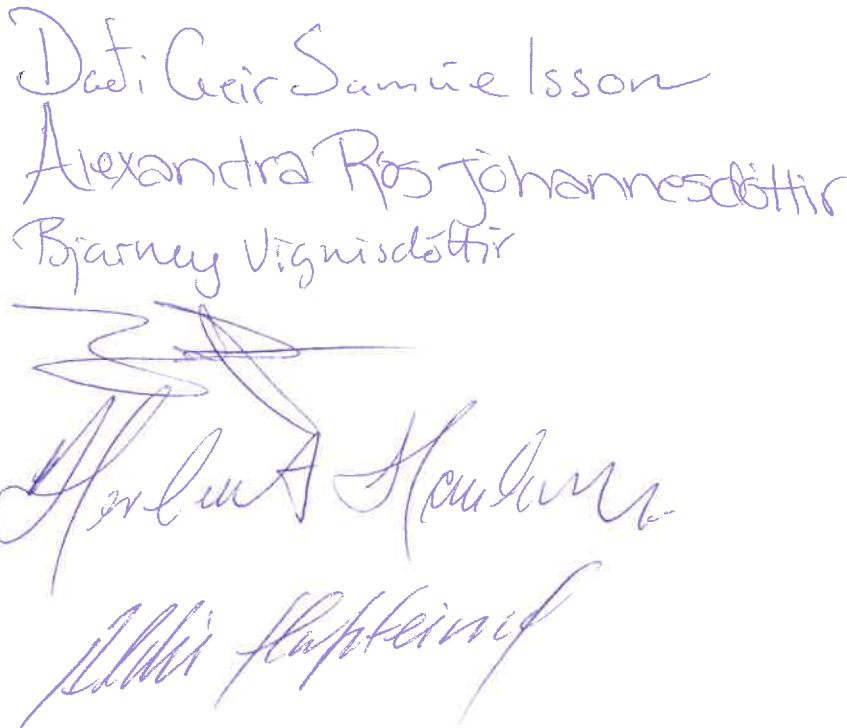 Daði Geir Samúelsson
Alexandra Rós Jóhannesdóttir
Bjarney Vignisdóttir
Herbert Hauksson